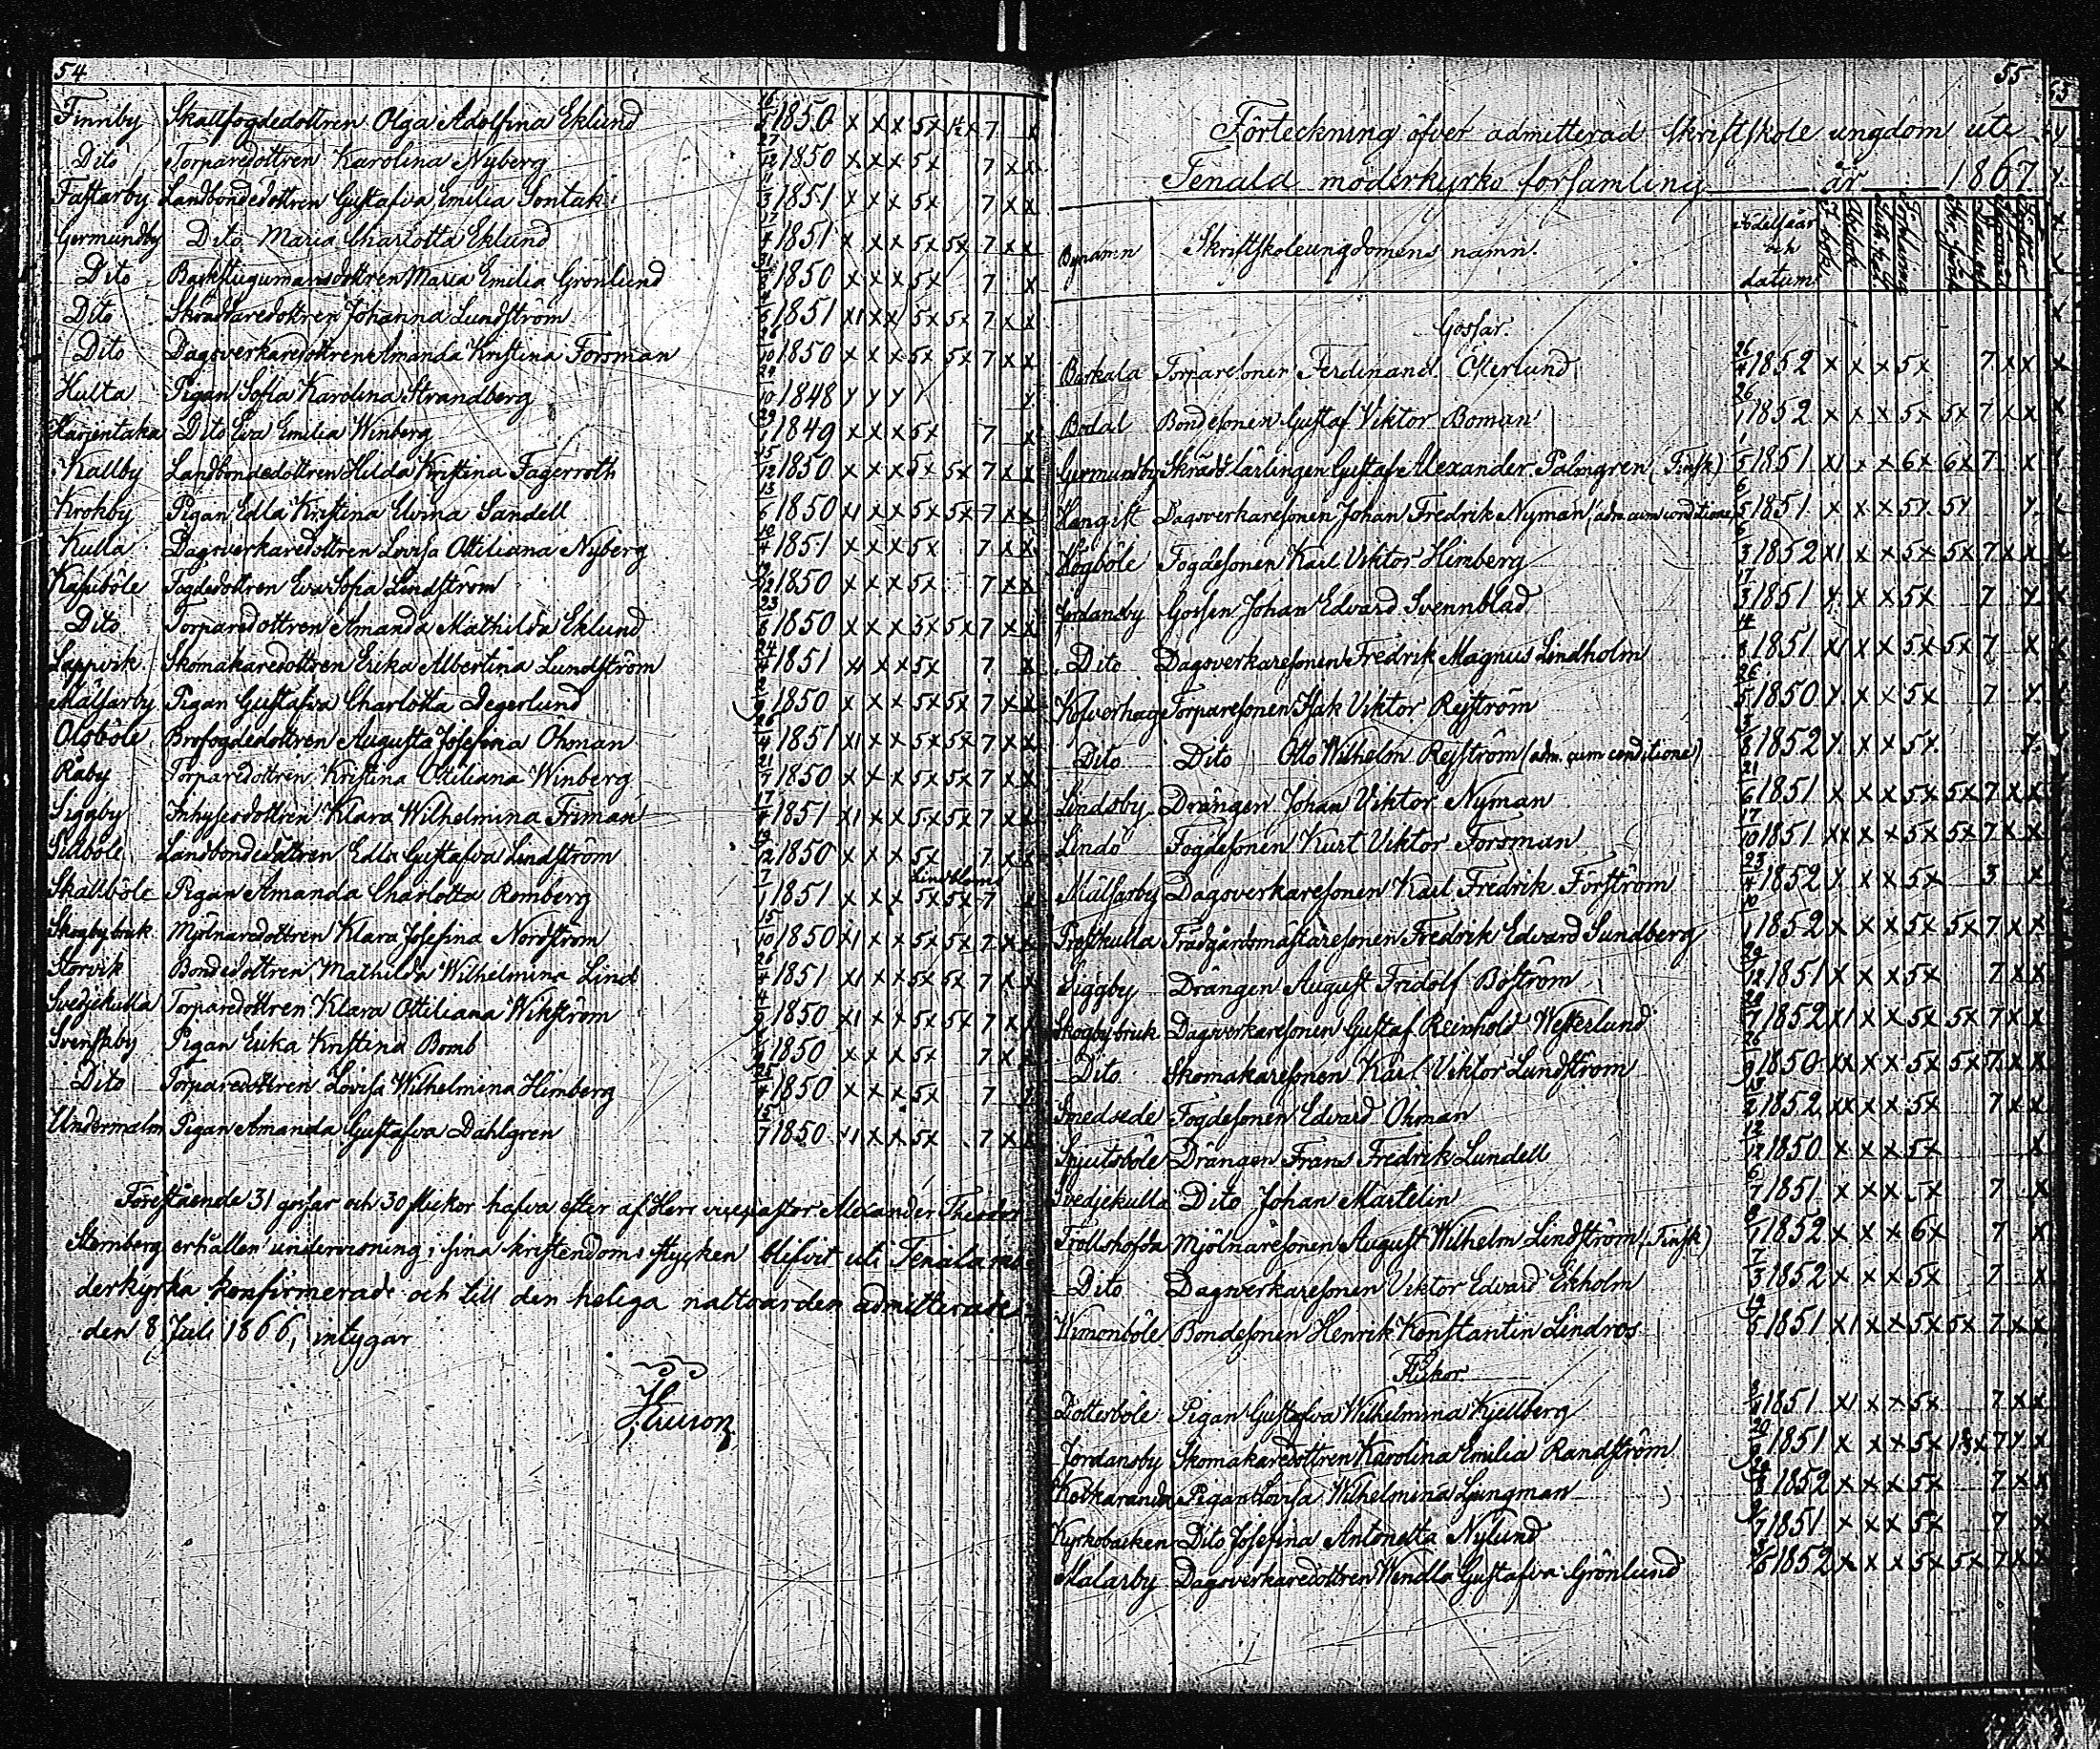 54
Finnby Skallfogdedottren Olga Adolfina Eklund 16/5 1850 x x x 5x 1½x 7 x
Dito Torparedottren Karolina Nyberg 27/12 1850 x x x 5x 7 x x
Fastarby Landbondedottren Gustafva Emilia Sontak 1851 x x x 5x 7 x x
Germundby Dito Maria Charlotta Eklund 1851 x x x 5x 5x 7 x x
Dito Backstugumansdottren Maria Emilia Grönlund 1850 x x x 5x 7 x
Dito Skräddaredottren Johanna Lundström 1851 x1 x x 5x 5x 7 x x
Dito Dagsverkaredottren Amanda Kristina Forsman 1850 x x x 5x 5x 7 x x
Hulta Pigan Sofia Karolina Strandberg 24/10 1848
Harjentaka Dito Eva Emilia Winberg 29/1 1849 x x x 5x 7 x
Kallby Landbondedottren Hilda Kristina Fagerroth 15/12 1850 x x x 5x 5x 7 x x
Krokby Pigan Edla Kristina Elvina Sandell 13/6 1850 x1 x x 5x 5x 7 x x
Kulla Dagsverkaredottren Lovisa Ottiliana Nyberg 1851 x x x 5x 7 x x
Kassböle Fogdedottren Eva Sofia Lindström 1850 x x x 5x 7 x x
Dito Torparedottren Amanda Mathilda Eklund 23/8 1850 x x x 5x 5x 7 x x
Lappvik Skomakaredottren Erika Albertina Lundström 1851 x1 x x 5x 7 x
Mälsarby Pigan Gustafva Charlotta Degerlund 1850 x x x 5x 5x 7 x x
Olsböle Brofogdedottren Augusta Josefina Öhman 1851 x1 x x 5x 5x 7 x x
Råby Torparedottren Kristina Ottiliana Winberg 1850 x x x 5x 5x 7 x x
Siggby Inhysesdottren Klara Wilhelmina Friman 17/4 1851 x1 x x 5x 5x 7 x x
Sillböle Landbondedottren Edla Gustafva Lindström 1850 x x x 5x 7 x x
Lindbloms
Skallböle Pigan Amanda Charlotta Remberg 7/1 1851 x x x 5x 5x 7 x
Skogby bruk Mjölnaredottren Klara Josefina Nordström 15/10 1850 x1 x x 5x 5x 7 x x
Storvik Bondedottren Mathilda Wilhelmina Lind 26/4 1851 x1 x x 5x 5x 7 x x
Svedjekulla Torparedottren Klara Ottiliana Wikström 4/9 1850 x1 x x 5x 5x 7 x x
Svenskby Pigan Erika Kristina Bomb 1850 x x x 5x 7 x
Dito Torparedottren Lovisa Wilhelmina Himberg 1850 x x x 5x 7
Undermalm Pigan Amanda Gustafva Dahlgren 15/7 1850 x1 x x 5x 7 x x
Förestående 31 gossar och 30 flickor hafva efter af Herr vicepastor Alexander Theodor
Stemberg erhållen undervisning i sina kristendoms stycken blifvit uti Tenala mo-
derkyrka konfirmerade och till den heliga nattvarden admitterade
den 8 Juli 1866, intygar
55
Förteckning öfver admitterad skriftskole ungdom uti
Tenala moderkyrko församling år 1867
Bynamn Skriftskoleungdomens namn. Födelseår och datum
Gossar.
Barkala Torparesonen Ferdinand Österlund 26/4 1852 x x x 5x 7 x x
Bodal Bondesonen Gustaf Viktor Boman 26/1 1852 x x x 5x 5x 7 x x
Germundby Skrädd. Lärlingen Gustaf Alexander Palmgren (Finsk) 1/5 1851 x1 x x 6x 6x 7 x
Hangist Dagsverkaresonen Johan Fredrik Nyman (adm. cum conditione) 1851 x x x 5x 5x x
Högböle Fogdesonen Karl Viktor Himberg 6/3 1852 x1 x x 5x 5x 7 x x
Jordansby Gossen Johan Edvard Svennblad 17/3 1851 x x x 5x 7 x
Dito Dagsverkaresonen Fredrik Magnus Lindholm 14/8 1851 x1 x x 5x 5x 7 x
Kofverhage Torparesonen Isak Viktor Rejström 26/5 1850 x x x 5x 7 x
Dito Dito Otto Wilhelm Rejström (adm. cum conditione) 1852 x x x 5x x
Lindsby Drängen Johan Viktor Nyman 21/6 1851 x x x 5x 5x 7 x x
Lindö Fogdesonen Kurt Viktor Forsman 17/10 1851 xx x x 5x 5x 7 x x
Mälsarby Dagsverkaresonen Karl Fredrik Förström 23/4 1852 x x x 5x 3 x
Prestkulla Trädgårdsmästaresonen Fredrik Edvard Sundberg 10/1 1852 x x x 5x 5x 7 x x
Siggby Drängen August Fridolf Boström 29/12 1851 x x x 5x 7 x x
Skogby bruk Dagsverkaresonen Gustaf Reinhold Westerlund 1852 x1 x x 5x 5x 7 x x
Dito Skomakaresonen Karl Viktor Lundström 26/9 1850 xx x x 5x 5x 7 x x
Smedsede Fogdesonen Edvard Öhman 1852 xx x x 5x 7 x x
Spjutsböle Drängen Frans Fredrik Lundell 12/12 1850 x x x 5x x
Svedjekulla Dito Johan Martelin 6/7 1851 x x x 5x 7 x
Trollshofda Mjölnaresonen August Wilhelm Lindström (Finsk) 8/1 1852 x x x 6x 7 x
Dito Dagsverkaresonen Viktor Edvard Ekholm 7/3 1852 x x x 5x 7 x
Wimonböle Bondesonen Henrik Konstantin Lindros 1851 x1 x x 5x 5x 7 x x
Flickor
Dotterböle Pigan Gustafva Wilhelmina Kjellberg 1851 x1 x x 5x 7 x x
Jordansby Skomakaredottren Karolina Emilia Randström 20/9 1851 x x x 5x 7 x x
Kotkaranda Pigan Lovisa Wilhelmina Ljungman 1852 x x x 5x 7 x x
Kyrkobacken Dito Josefina Antonetta Nylund 1851 x x x 5x 7 x
Malarby Dagsverkaredottren Wendla Gustafva Grönlund 1852 x x x 5x 5x 7 x x